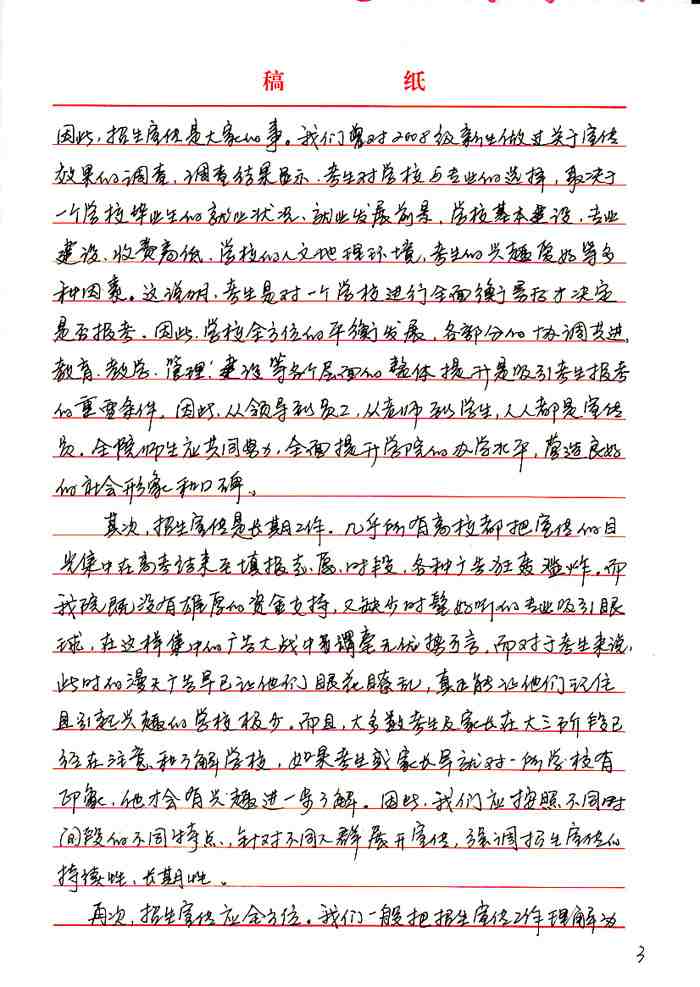 稿 纸
因此,招生宣传是大家的事。我们曾对2008级新生做过关于宣传
效果的调查,调查结果显示,考生对学校与专业的选择,取决于
一个学校毕业生的就业状况、就业发展前景,学校基本建设,专业
建设、收费高低、学校的人文地理环境,考生的兴趣爱好等多
种因素。这说明,考生是对一个学校进行全面衡量后才决定
是否报考。因此,学校全方位的平衡发展,各部分的协调共进,
教育、教学、管理、建设等各个层面的整体提升是吸引考生报考
的重要条件。因此,从领导到员工,从老师到学生,人人都是宣传
员。全院师生应共同努力,全面提升学院的办学水平,营造良好
的社会形象和口碑。
其次,招生宣传是长期工作。几乎所有高校都把宣传的目
光集中在高考结束至填报志愿时段,各种广告狂轰滥炸。而
我院既没有雄厚的资金支持,又缺少时髦好听的专业吸引眼
球,在这样集中的广告大战中可谓毫无优势可言,而对于考生来说,
此时的漫天广告早已让他们眼花瞭乱,真正能让他们记住
且引起兴趣的学校极少。而且,大多数考生及家长在大三阶段已
经在注意和了解学校,如果考生或家长早就对一所学校有
印象,他才会有兴趣进一步了解。因此,我们应按照不同时
间段的不同特点,针对不同人群展开宣传,强调招生宣传的
持续性、长期性。
再次,招生宣传应全方位。我们一般把招生宣传工作理解为
3